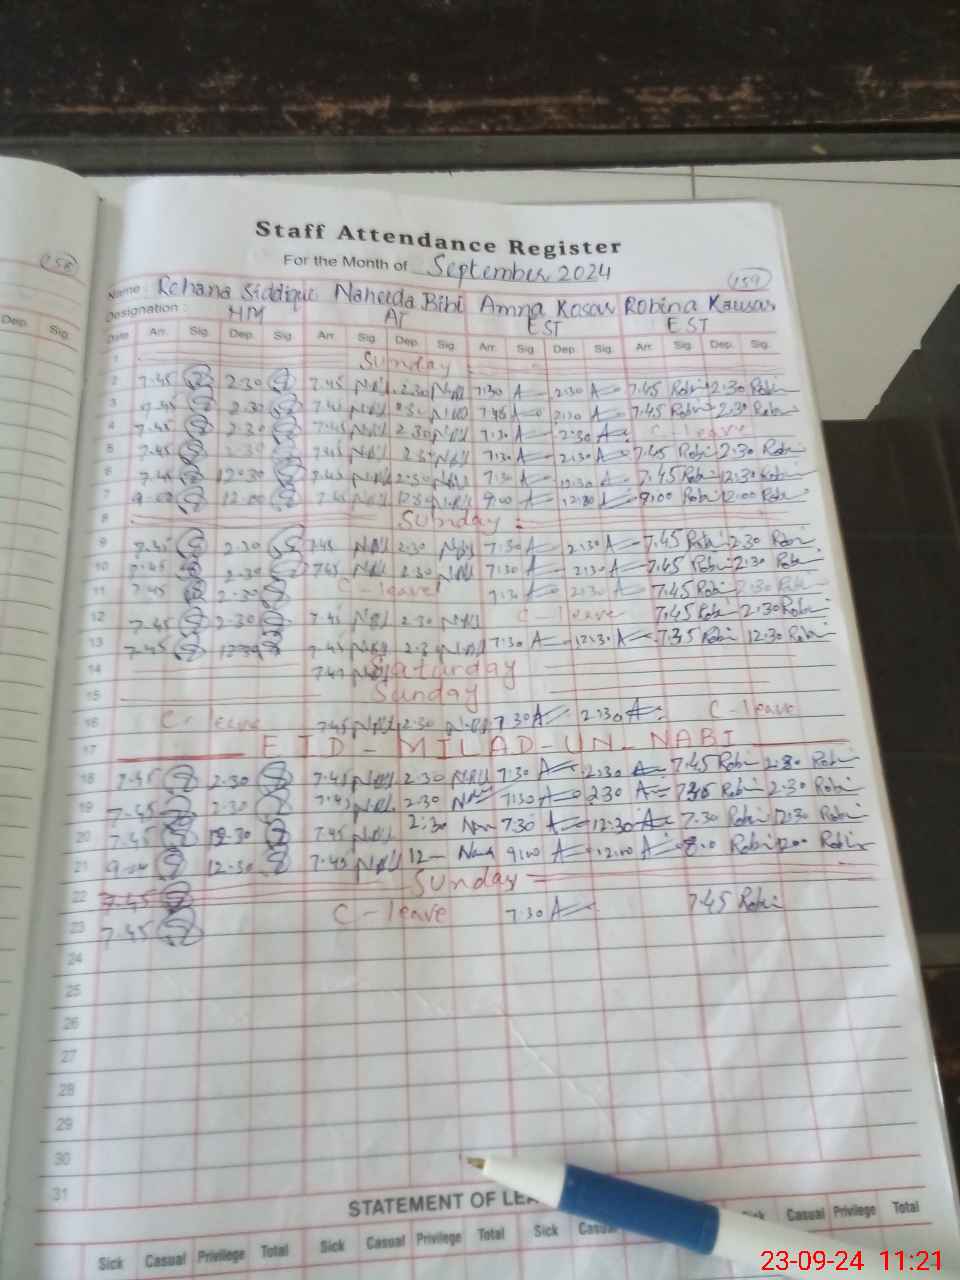 158
Staff Attendance Register
For the Month of September 2024
159
Name : Rehana Siddique Naheeda Bibi Amna Kosar Robina Kausar
Designation : HM AT EST EST
Dep. Sig.
Date Arr. Sig. Dep. Sig. Arr. Sig. Dep. Sig. Arr. Sig. Dep. Sig. Arr. Sig. Dep. Sig.
1 Sunday
2 7.45 2.30 7.45 2.30 7:30 A 2:30 A 7.45 Robi 2:30 Robi
3 7.45 2.30 7.45 A 2:30 A 7.45 Robi 2.30 Robi
4 7.45 2.30 7.45 2.30 7:30 A 2:30 A C-leave
5 7.45 7:30 A 2:30 A 7.45 Robi 2.30 Robi
6 7.45 12.30 7.45 7:30 A 12:30 A 7.45 Robi 12.30 Robi
7 9.00 12.00 9:00 A 9:00 Robi 12.00 Robi
8 Sunday
9 7.45 2.30 7.45 2.30 7:30 A 2:30 A 7.45 Robi 2.30 Robi
10 7.45 2.30 7.45 2.30 7:30 A 2:30 A 7.45 Robi 2.30 Robi
11 7.45 2.30 C-leave 7:30 A 2:30 A 7.45 Robi 2:30 Robi
12 7.45 2.30 7.45 2.30 C-leave 7.45 Robi 2.30 Robi
13 7.45 7.45 7:30 A 12:30 A 7.35 Robi 12.30 Robi
14 Saturday
15 Sunday
16 C-leave 7.45 2.30 7.30 A 2:30 A C-leave
17 EID-MILAD-UN-NABI
18 7.45 2.30 7.45 2.30 7:30 A 2:30 A 7.45 Robi 2.30 Robi
19 7.45 2.30 7.45 2.30 7:30 A 2:30 A Robi 2.30 Robi
20 7.45 12.30 7.45 2:30 7.30 A 12:30 A 7.30 Robi 12:30 Robi
21 9.00 12.30 7.45 12 9:00 A 12.00 A 8.0 Robi 1200 Robi
22 7.45 Sunday
23 7.45 C-leave 7.30 A 7.45 Robi
24
25
26
27
28
29
30
31
STATEMENT OF
Sick Casual Privilege Total Sick Casual Privilege Total Sick Casual Privilege Total
23-09-24 11:21